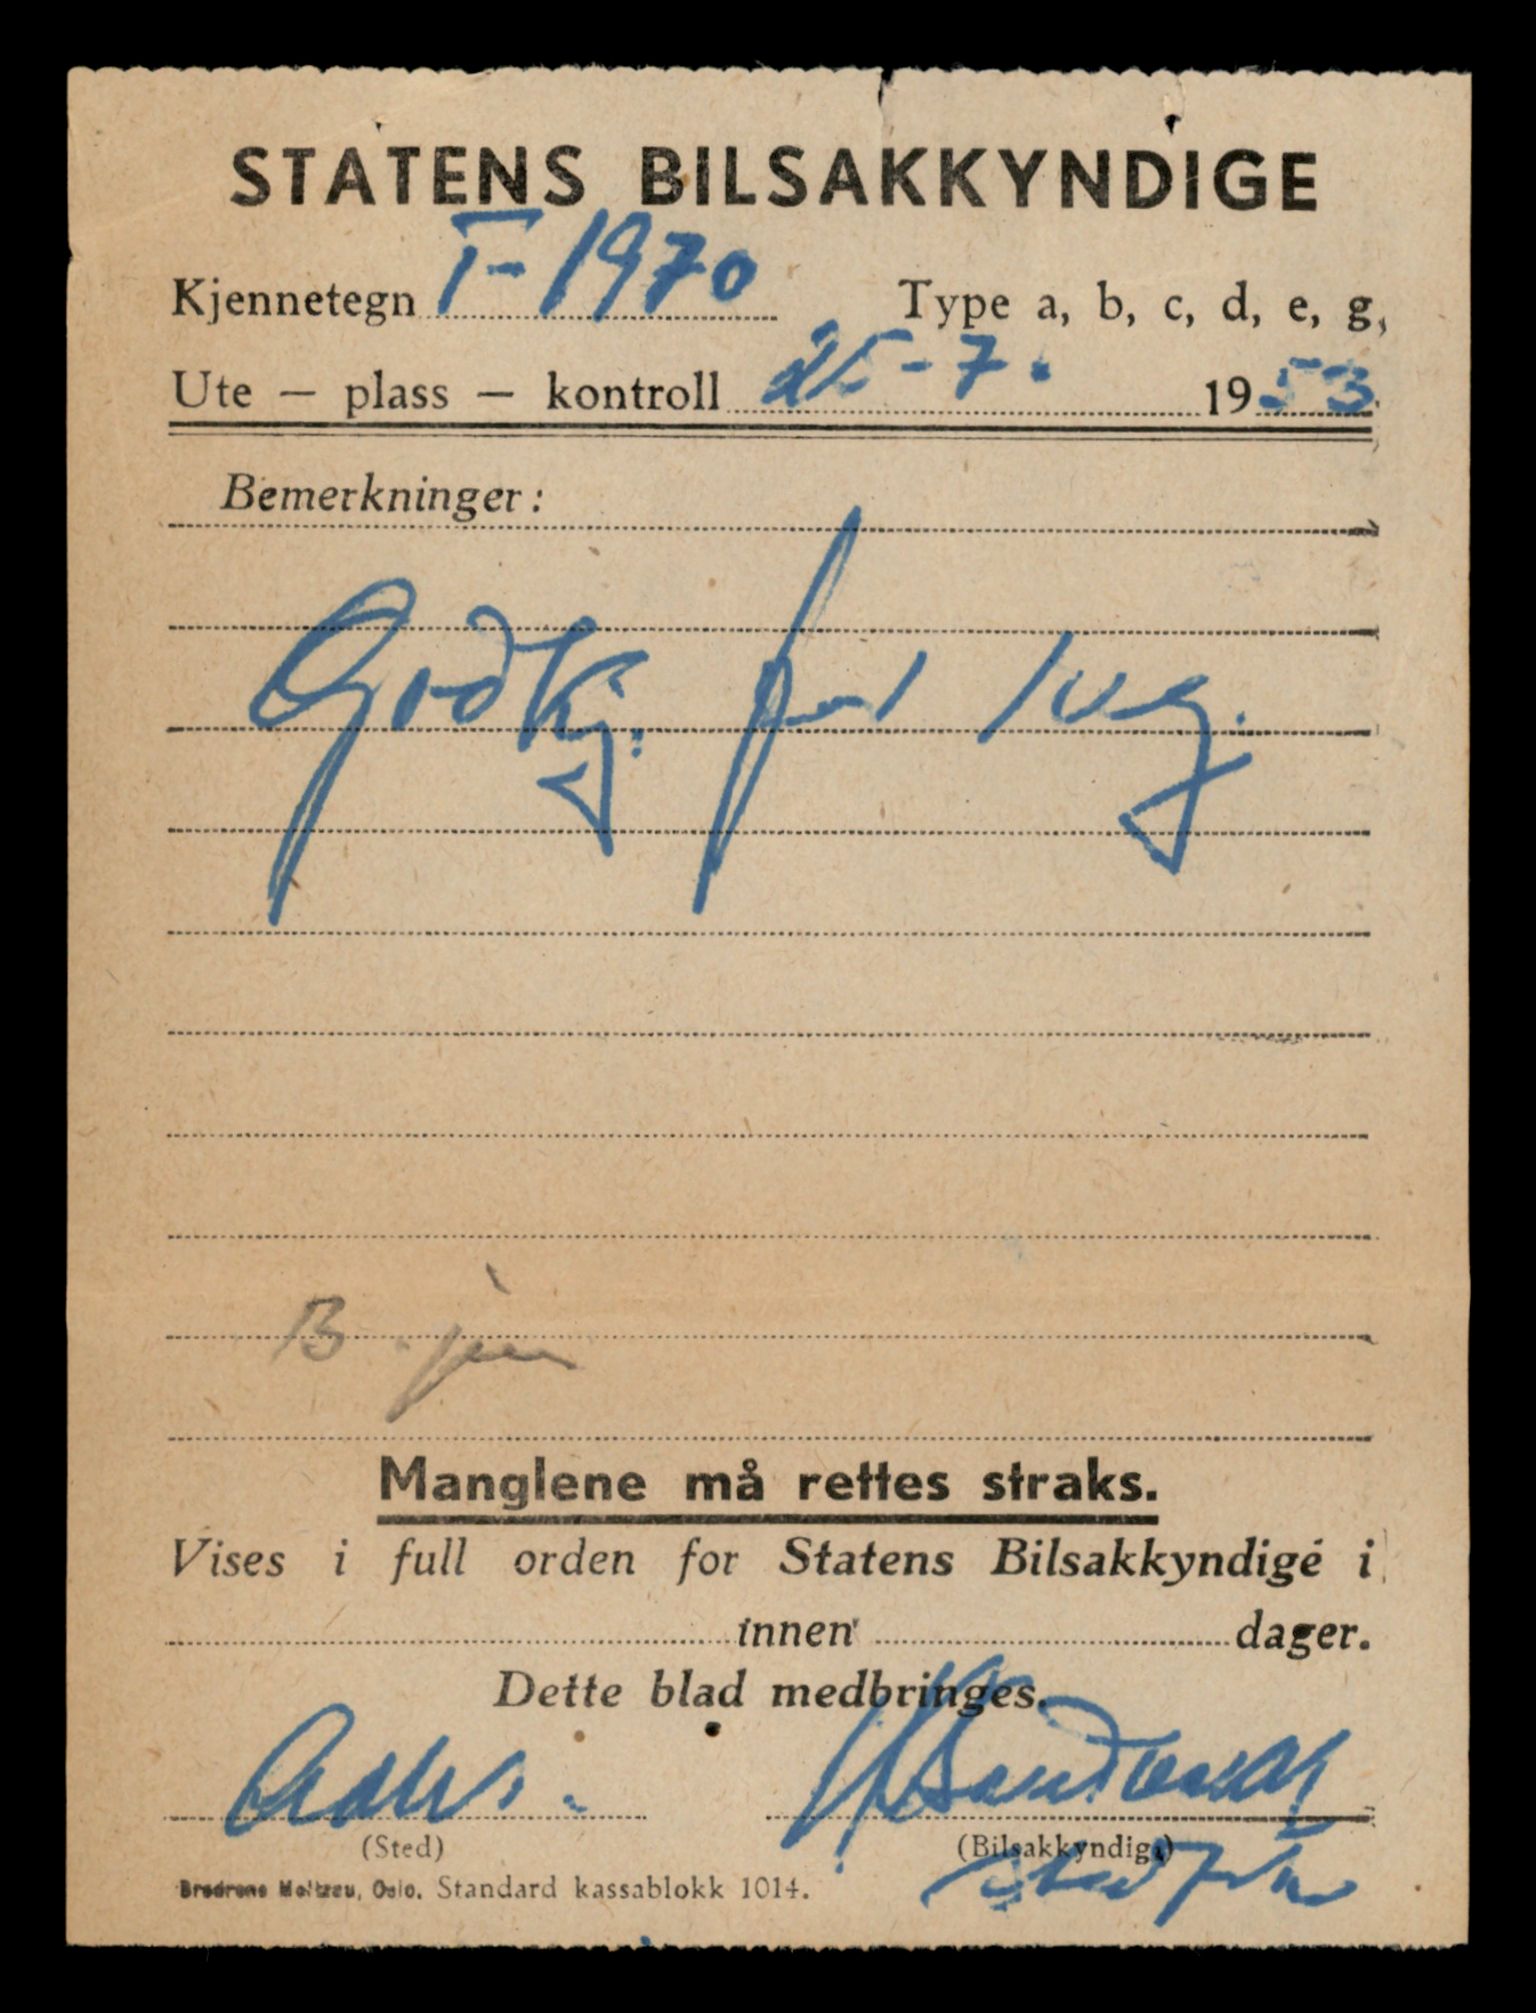 STATENS BILSAKKYNDIGE
Kjennetegn T-1970 Type a, b, c, d, e, g,
Ute — plass — kontroll 25-7. 1953
Bemerkninger:
Godkj. for
B
Manglene må rettes straks.
Vises i full orden for Statens Bilsakkyndige i
innen dager.
Dette blad medbringes.
(Sted) (Bilsakkyndig)
Brødrene Moltzau, Oslo. Standard kassablokk 1014.